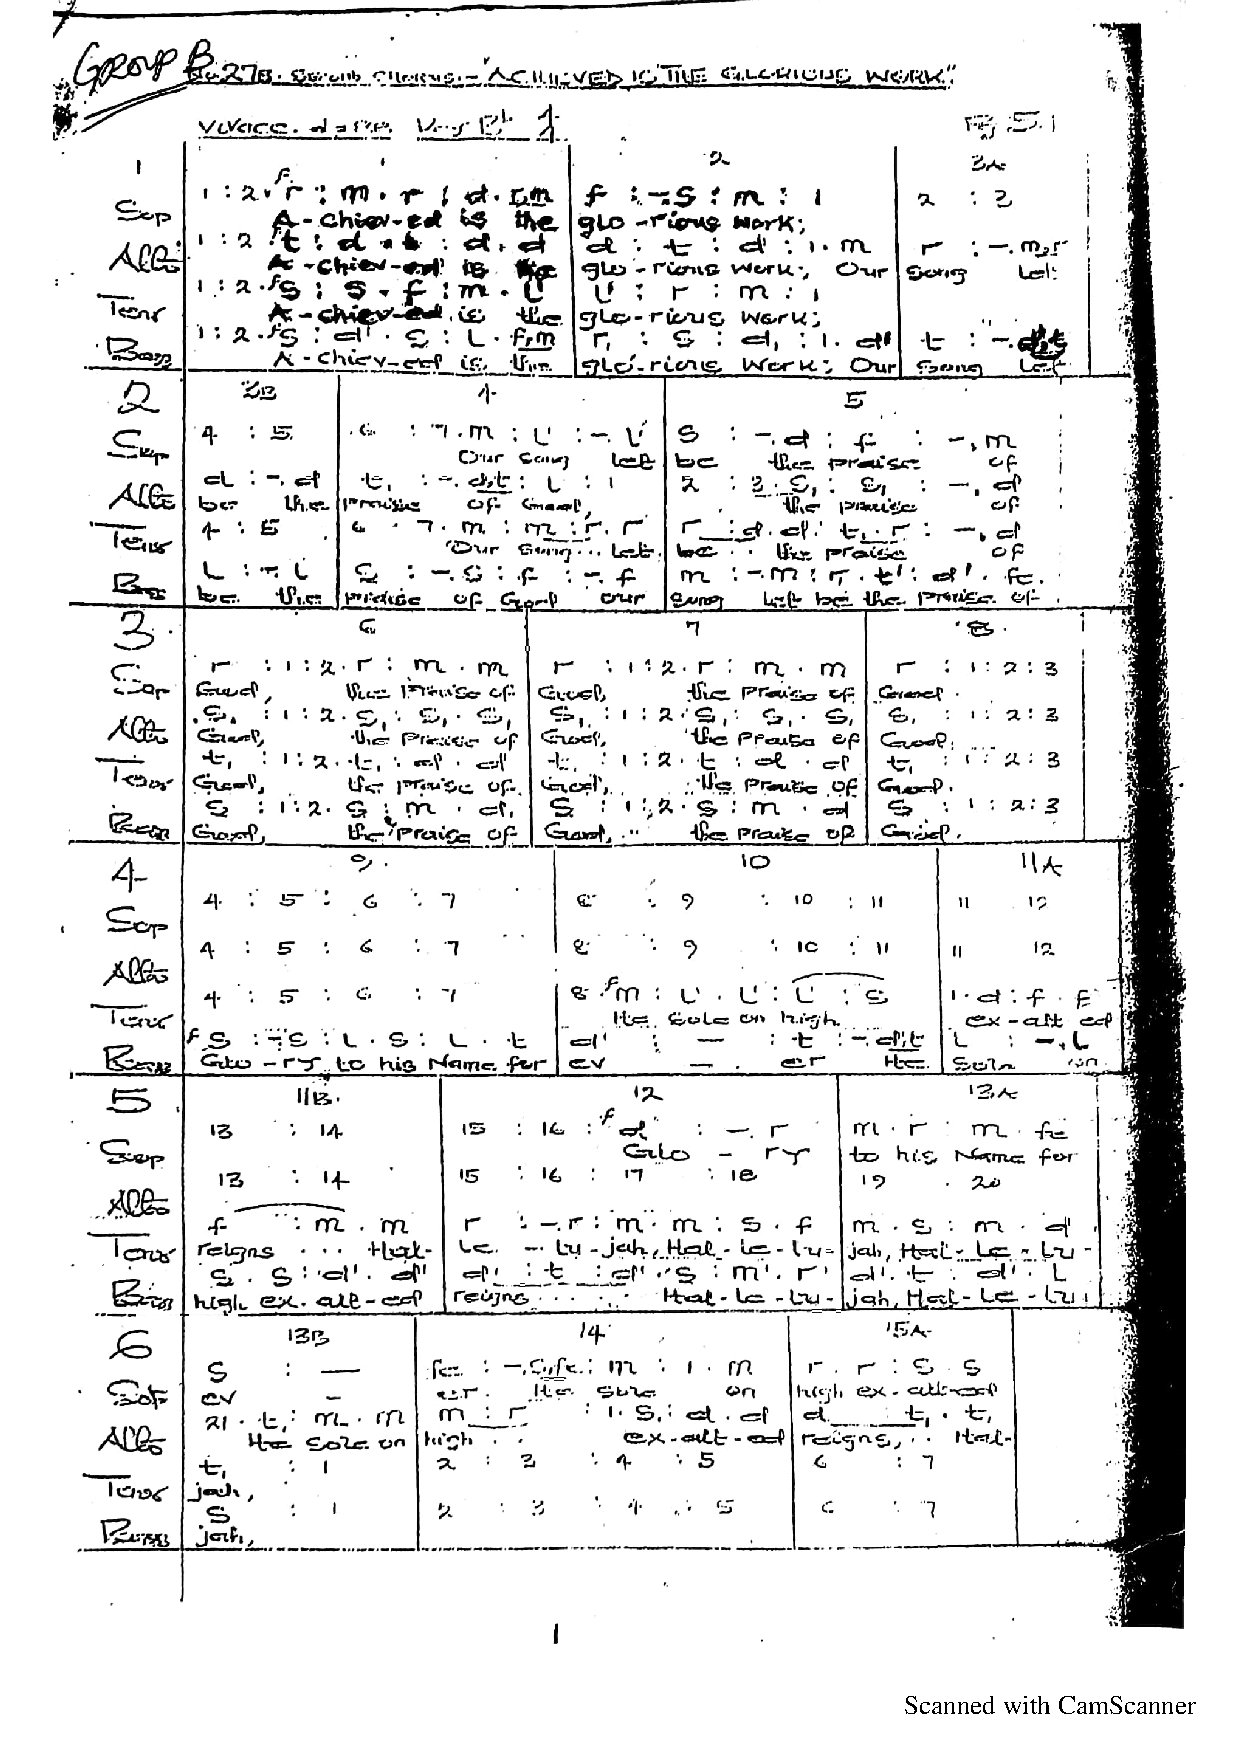 GROUP B
No. 27B. Second Chorus:- "ACHIEVED IS THE GLORIOUS WORK"
Vivace. Key Bb
1 2 3A
1
Sop 1 : 2 . r : m . r : d . r,m f : - . s : m : 1 2 : 3
A-chiev-ed is the glo-rious work;
Alto 1 : 2 . t : d . t : d . d d : t : d : 1 . m r : - . m,r
A-chiev-ed is the glo-rious work; Our Song let
Tenr 1 : 2 . s : s . f : m . l l : r : m : 1
A-chiev-ed is the glo-rious work;
Bass 1 : 2 . s : d' . s : l . f,m r : s : d : 1 . d' t : - .
A-chiev-ed is the glo-rious work; Our Song let
3B 4 5
2
Sop 4 : 5 6 : 7 . m : l : - . l s : - . d : f : - , m
Our Song let be the praise of
Alto d : - . d t, : - . d,t : l : 1 2 : 3 . s, : s, : - , d
be the praise of God, the praise of
Tenr 4 : 5 6 . 7 . m : m : r . r r : d . d : t, . r : - , d
Our Song... let be.. the praise of
Bass l : - . l s : - . s : f : - . f m : - m : r . t' : d' . fe.
be the praise of God our Song let be the praise of
6 7 8
3
Sop r : 1 : 2 . r : m . m r : 1 : 2 . r : m . m r : 1 : 2 : 3
God, the Praise of God, the praise of God.
Alto s, : 1 : 2 . s, : s, . s, s, : 1 : 2 . s, : s, . s, s, : 1 : 2 : 3
God, the praise of God, the praise of God.
Tenr t, : 1 : 2 . t, : d . d t, : 1 : 2 . t : d . d t, : 1 : 2 : 3
God, the praise of God, the praise of God.
Bass s : 1 : 2 . s : m . d, s : 1 : 2 . s : m . d s : 1 : 2 : 3
God, the praise of God, the praise of God.
9 10 11A
4
Sop 4 : 5 : 6 : 7 8 : 9 : 10 : 11 11 12
Alto 4 : 5 : 6 : 7 8 : 9 : 10 : 11 11 12
Tenr 4 : 5 : 6 : 7 8 . m : l . l : l : s 1 . d : f . f
He sole on high ex-alt-ed
Bass f s : - s : l . s : l . t d' : — : t : - . d',t l : - . l
Glo-ry to his Name for ev — er He Sole on
11B 12 13A
5
Sop 13 : 14 15 : 16 : f d : - . r m . r : m . fe
Glo - ry to his Name for
Alto 13 : 14 15 : 16 : 17 : 18 19 . 20
Tenr f : m . m r : - . r : m . m : s . f m . s : m . d'
reigns ... Hal- le - lu - jah, Hal - le - lu - jah, Hal - le - lu -
Bass s . s : d' . d' d' : t : d' . s : m' . r' d' . t : d' . l
high ex-alt-ed reigns ..... Hal - le - lu - jah, Hal - le - lu
13B 14 15A
6
Sop s : — fe : - . s,fe : m : 1 . m r . r : s s
ev - er. He sole on high ex-alt-ed
Alto 21 . t, : m . m m : r : 1 . s, : d . d d t, . t,
He Sole on high .. ex-alt-ed reigns, .. Hal-
Tenr t, : 1 2 : 3 : 4 : 5 6 : 7
jah,
Bass s : 1 2 : 3 : 4 : 5 6 : 7
jah,
1
Scanned with CamScanner